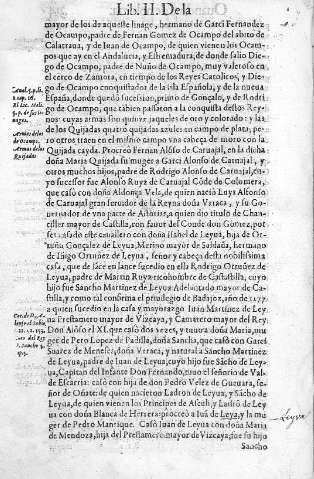 Lib. II. De la
mayor de los de aqueste linage, hermano de Garci Fernandez
de Ocampo, padre de Fernan Gomez de Ocampo del abito de
Calatraua, y de Iuan de Ocampo, de quien vienen los Ocam
pos que ay en el Andaluzia, y Estremadura, de donde salio Diego
de Ocampo, padre de Nuño de Ocampo, muy valeroso en
el cerco de Zamora, en tiempo de los Reyes Catolicos, y Die
go de Ocampo conquistador de la isla Española, y de la nueua
España, donde quedò sucession, primo de Gonçalo, y de Rodri
go de Ocampo, que tãbien passaron a la conquista destos Rey-
nos: cuyas armas son quinze jaqueles de oro y colorado: y las
de los Quijadas quatro quadros azules en campo de plata, pe-
ro otros traen en el mismo campo vna cabeça de moro con la
Quijada cayda. Procreò Fernan Alonso de Caruajal, en la dicha
doña Maria Quijada su muger a Garci Alonso de Caruajal, y
otros muchos hijos, padre de Rodrigo Alonso de Caruajal, cu-
yo sucessor fue Alonso Ruyz de Caruajal Cõde de Colomera,
que casò con doña Aldonça Vela, de quien naciò Luys Alonso
de Caruajal gran seruidor de la Reyna doña Vrraca, y su Go-
uernador de vna parte de Asturias, a quien dio titulo de Chan-
ciller mayor de Castilla, con fauor del Conde don Gomez, por
ser casado este cauallero con doña Isabel de Leyua, hija de Or-
tuño Gonçalez de Leyua, Merino mayor de Saldaña, hermano
de Iñigo Ortuñez de Leyua, señor y cabeça desta nobilissima
casa, que de lãce en lance sucedio en ella Rodrigo Ortuñez de
Leyua, padre de Martin Ruyz ricohombre de Castilla, cuyo
hijo fue Sancho Martinez de Leyua Adelantado mayor de Cas-
tilla, y como tal confirma el priuilegio de Badajoz, año de 1277.
a quien sucedio en la casa y mayorazgo Iuan Martinez de Ley
ua Prestamero mayor de Vizcaya, y Camarero mayor del Rey
Don Alõso el XI. que casò dos vezes, y tuuo a doña Maria, mu-
ger de Pero Lopez de Padilla, doña Sancha, que casò con Garci
Suarez de Meneses, doña Vrraca, y natural a Sancho Martinez
de Leyua, padre de Iuan de Leyua, cuyo hijo fue Sãcho de Ley-
ua, Capitan del Infante Don Fernando, tuuo el señorio de Val-
de Escarria: casò con hija de don Pedro Velez de Gueuara, se-
ñor de Oñate: de quien nacieron Ladron de Leyua, y Sãcho de
Leyua, de quien vienen los Principes de Asculi, y Ladrõ de Ley
ua con doña Blanca de Herrera: procreò a Iuã de Leyua, y la mu
ger de Pedro Manrique. Casò Iuan de Leyua con doña Maria
de Mendoza, hija del Prestamero mayor de Vizcaya, fue su hijo
Sancho
Armas de los de Ocampo.
Armas de los Quijadas
Leyva